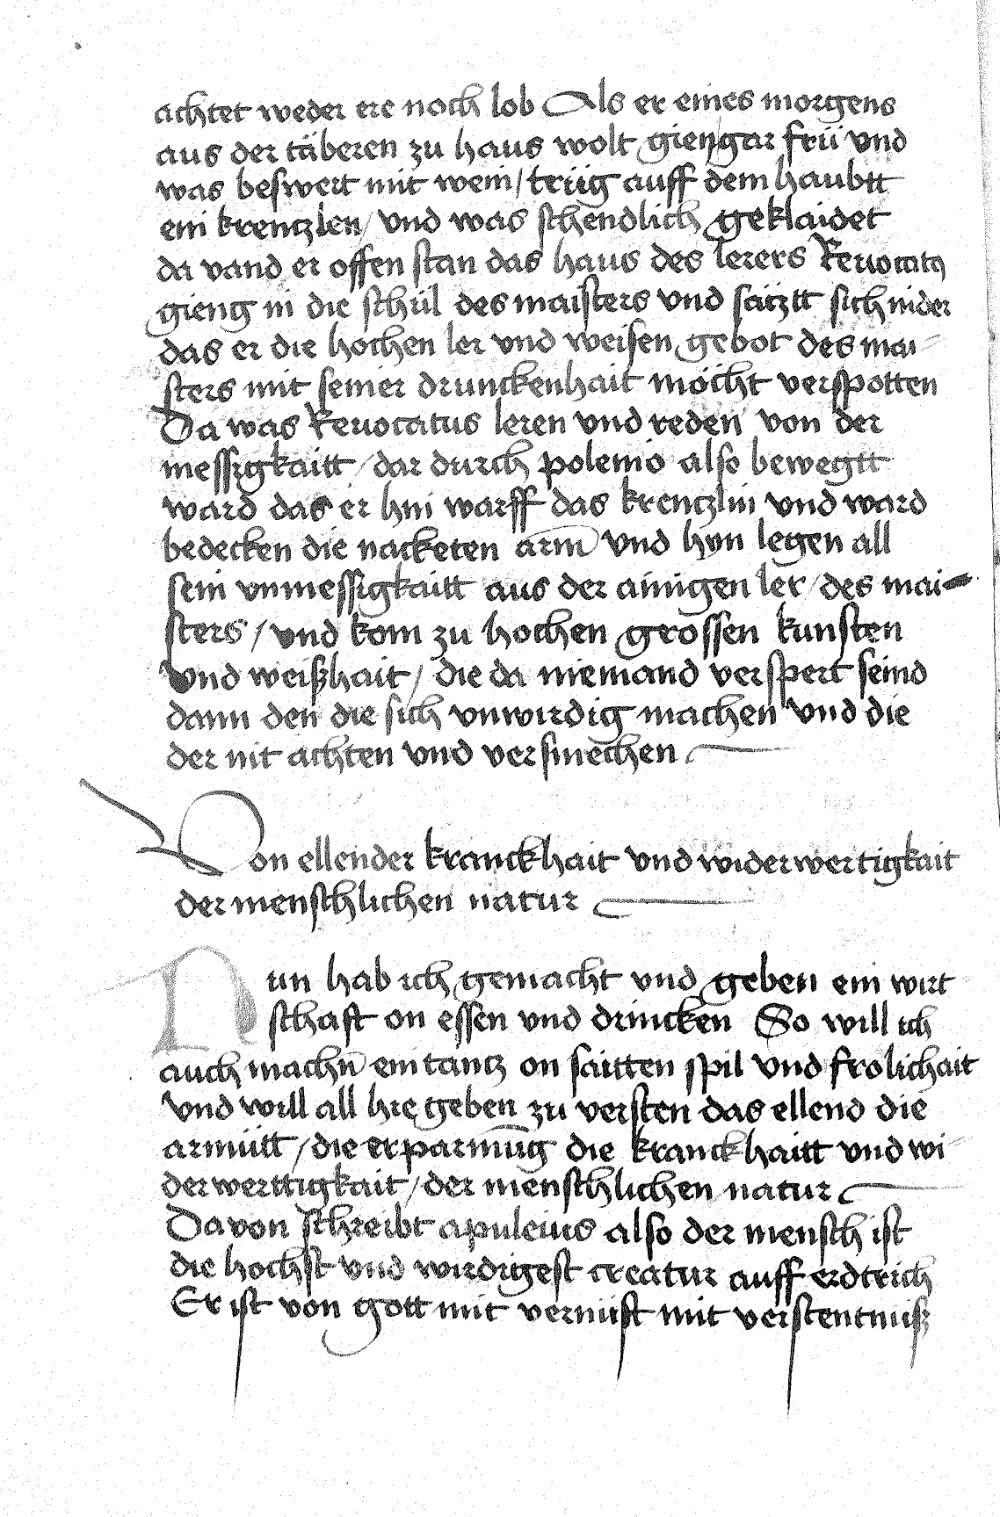 achtet weder ere noch lob Als er eines morgens
aus der täberen zu haus wolt gien gar frü und
was beswert mit wein / trüg auff dem haubtt
ein krentzlen / und was schendlich geklaidet
da vand er offen stan das haus des lerers Revocatꝯ
gieng in die schül des maisters und sätztt sich nider
das er die hochen ler und weisen gebot des mai-
sters mit seiner drunckenhait möcht verspotten
Da was Revocatus leren und reden von der
messigkaitt / dar durch polemo also bewegtt
ward das er hin warff das krentzlin und ward
bedecken die nacketen arm und hyn legen all
sein unmessigkaitt aus der ainigen ler / des mai-
sters / und kom zu hochen grossen kunsten
und weißhait / die da niemand verspert seind
dann den die sich unwirdig machen und die
der nit achten und versmechen
Von ellender kranckhait und widerwertigkait
der menschlichen natur
Nun hab ich gemacht und geben ein wirt
schafft on essen und drincken So will ich
auch machn̄ ein tantz on saitten spil und frolichait
und will all hie geben zu versten das ellend die
armütt / die erparmūg die kranckhaitt und wi-
derwerttigkait / der menschlichen natur
Davon schreibt apuleius also der mensch ist
die hochst und wirdigest creatur auff erdtrich
Er ist von gott mit vernüfft mit verstentnüß